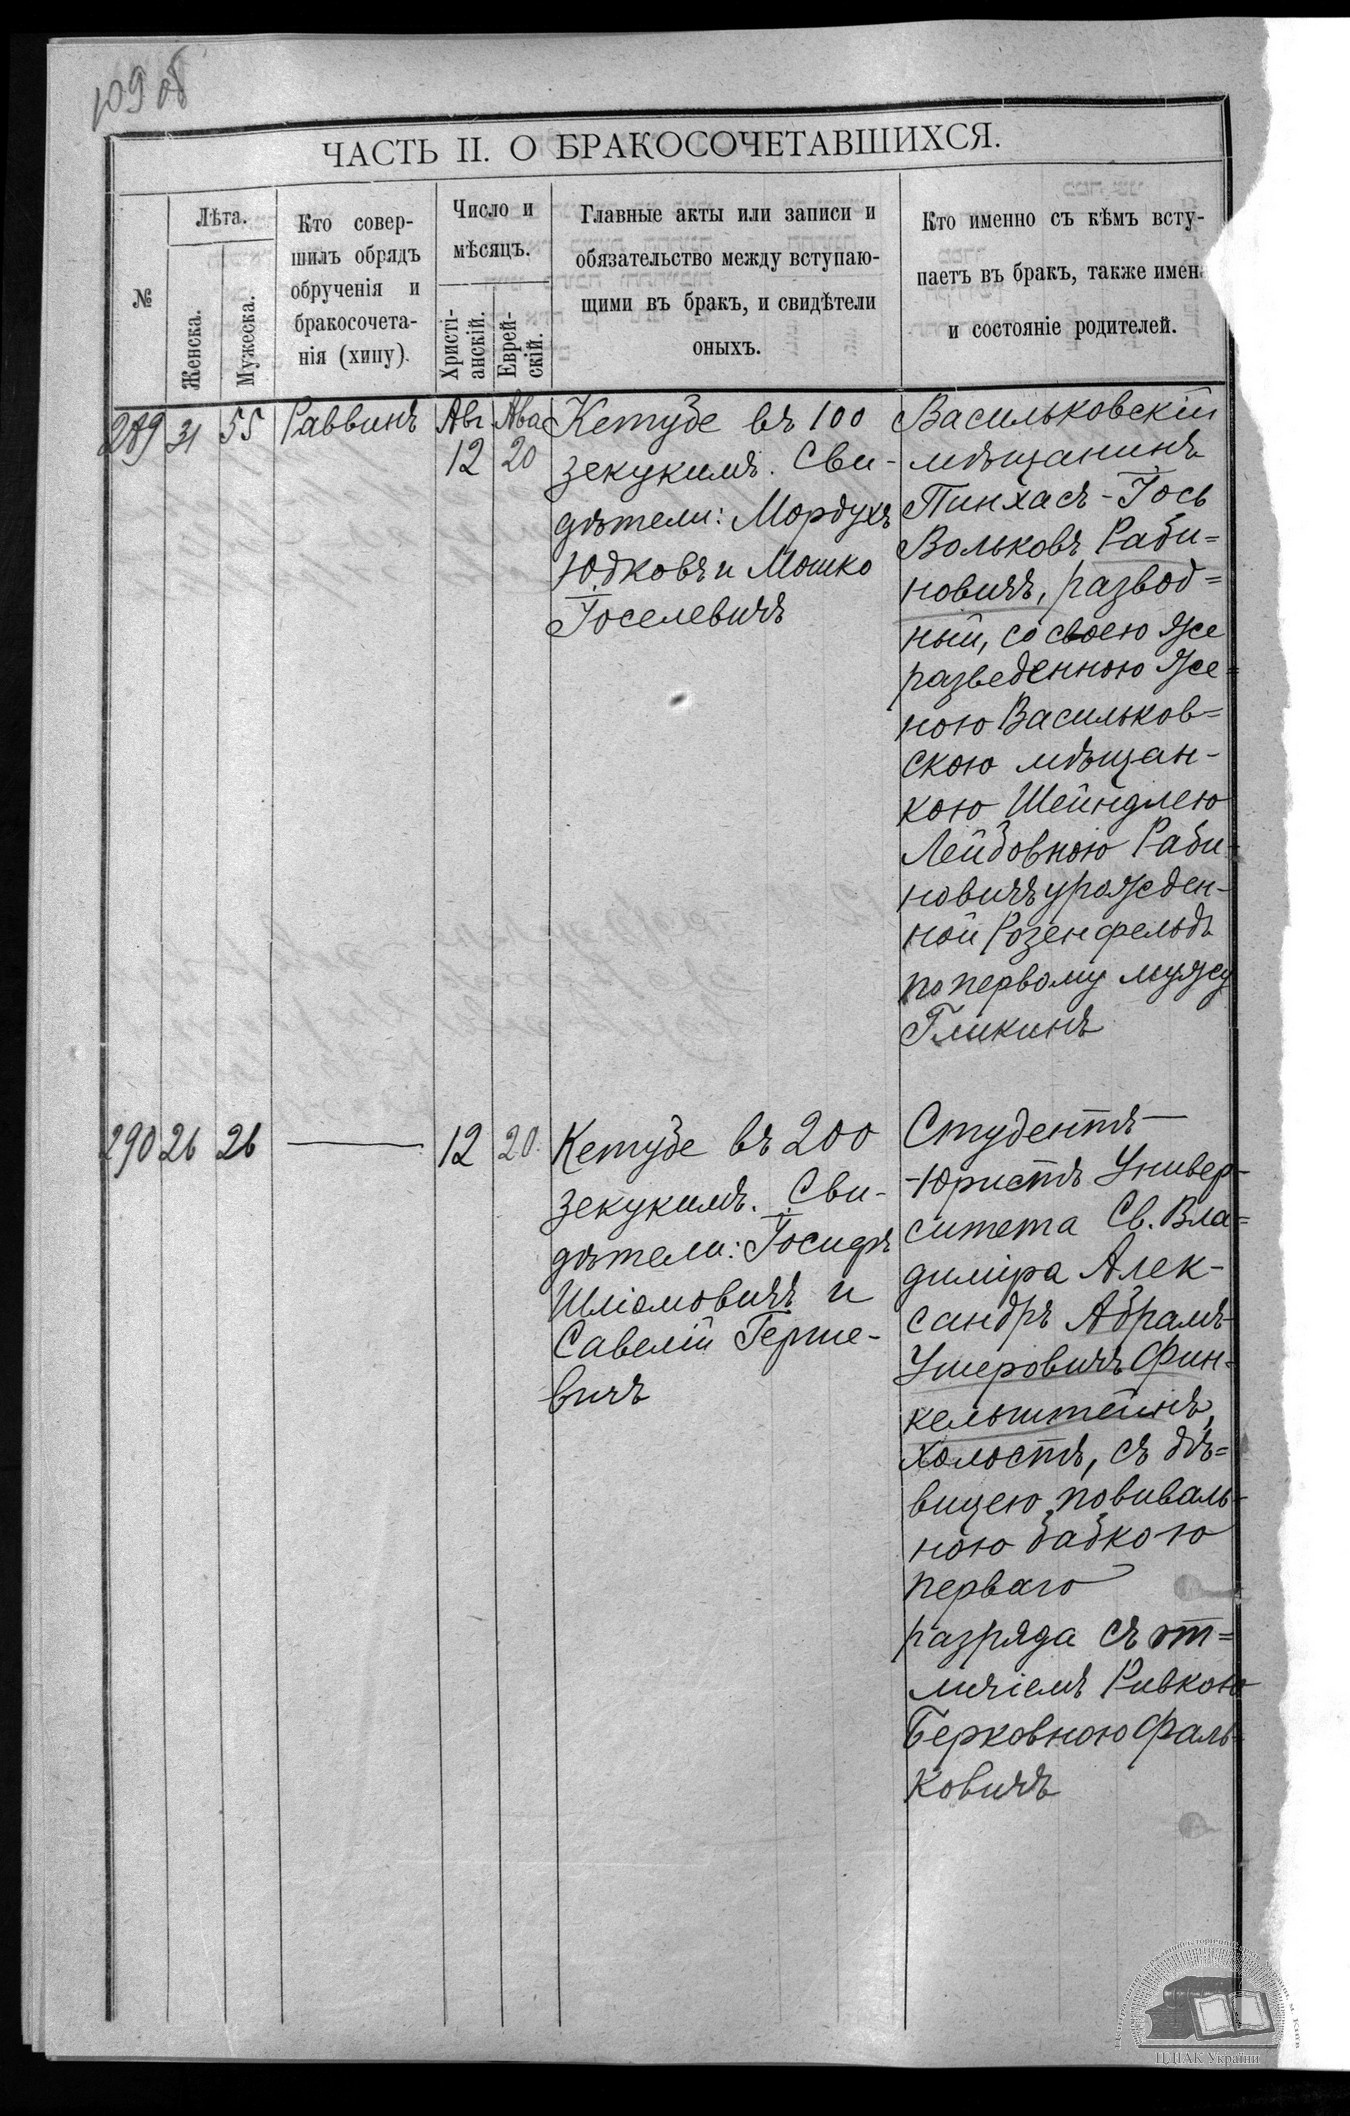 109 об
ЧАСТЬ II. О БРАКОСОЧЕТАВШИХСЯ.
№
Лѣта.
Женска.
Мужеска.
Кто совер-
шилъ обрядъ
обрученія и
бракосочета-
нія (хипу).
Число и
мѣсяцъ.
Христі-
анскій.
Еврей-
скій.
Главные акты или записи и
обязательство между вступаю-
щими въ бракъ, и свидѣтели
оныхъ.
Кто именно съ кѣмъ всту-
паетъ въ бракъ, также имен
и состояніе родителей.
289
31
55
Раввинъ
Авг
12
Ава
20
Кетубе въ 100
зекукимъ. Сви-
дѣтели: Мордухъ
Юдковъ и Мошко
Іоселевичъ
Васильковскій
мѣщанинъ
Пинхасъ-Іось
Вольковъ Раби=
новичъ, развод=
ный, со своею же
разведенною же=
ною Васильков=
скою мѣщан-
кою Шейндлею
Лейбовною Раби-
новичъ урожден-
ной Розенфельдъ
по первому мужу
Гликинъ
290
26
26
12
20.
Кетубе въ 200
зекукимъ. Сви-
дѣтели: Іосифъ
Шліомовичъ и
Савелій Герше-
вичъ
Студентъ-
Юристъ Универ-
ситета Св. Вла=
диміра Алек-
сандръ Абрамъ-
Ушеровичъ Фин-
кельштейнъ,
холостъ, съ дѣ=
вицею повиваль-
ною бабкою
перваго
разряда съ от=
личіемъ Ривкою
Берковною Фаль-
ковичъ
ЦДІАК України